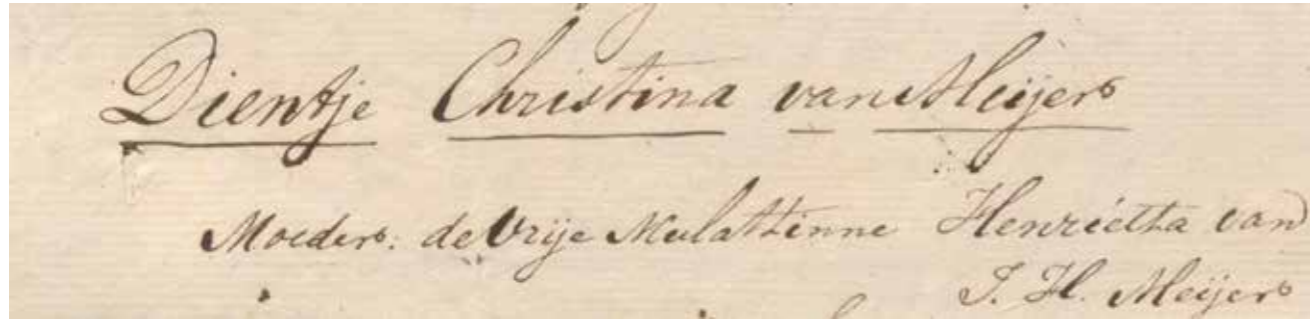 Dientje Christina van Meijer
Moeder: de Vrije Mulattinne Henriëtta van
J. H. Meijer